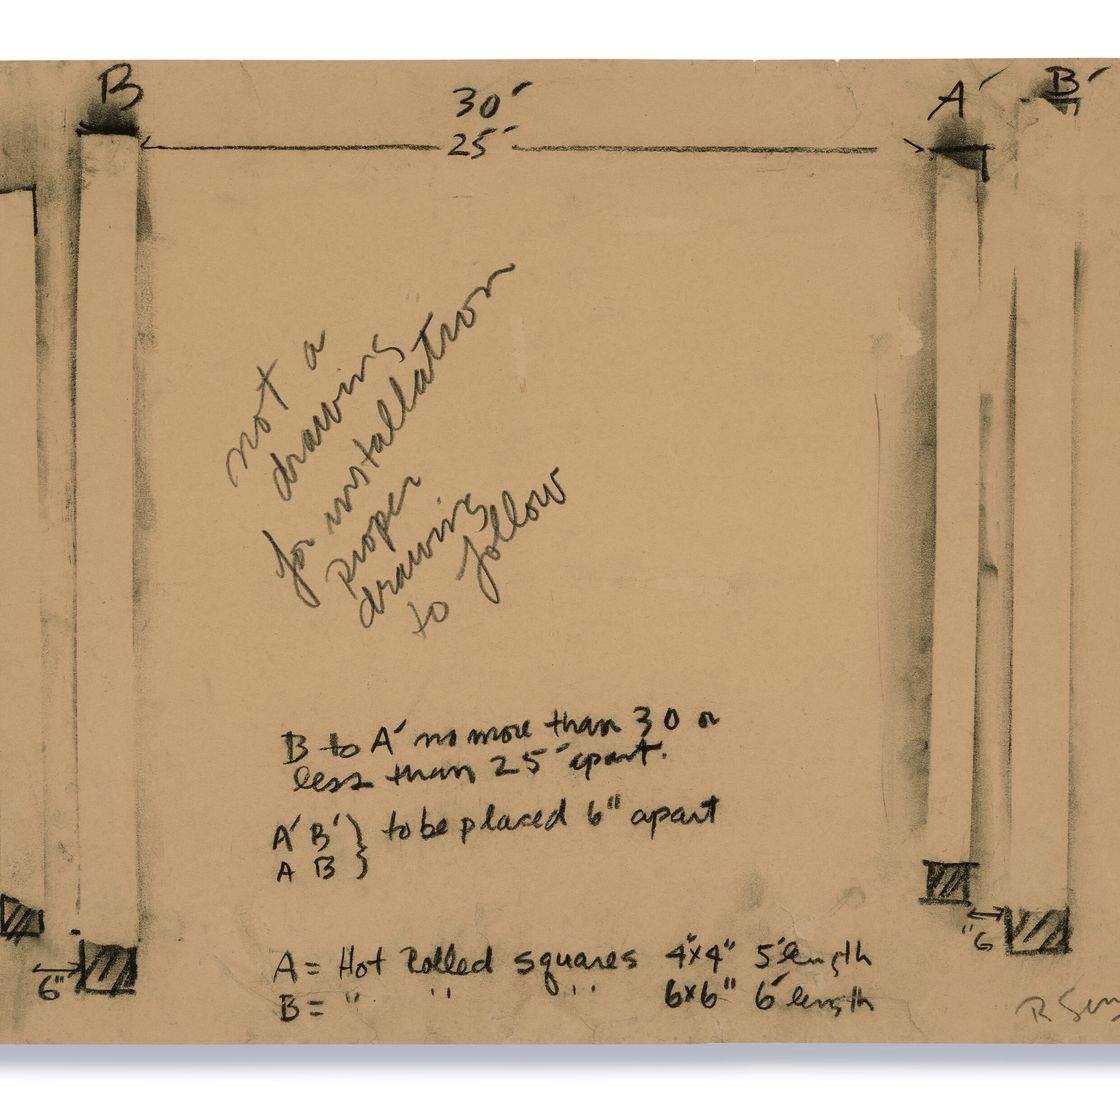 B
30′
25′
A′
B′
not a
drawing
for installation
proper
drawing
to follow
B to A′ no more than 30 or
less than 25′ apart.
A′ B′ } to be placed 6" apart
A B
6"
"6
A = Hot Rolled squares 4"x4" 5′ length
B = " " " 6x6" 6′ length
R